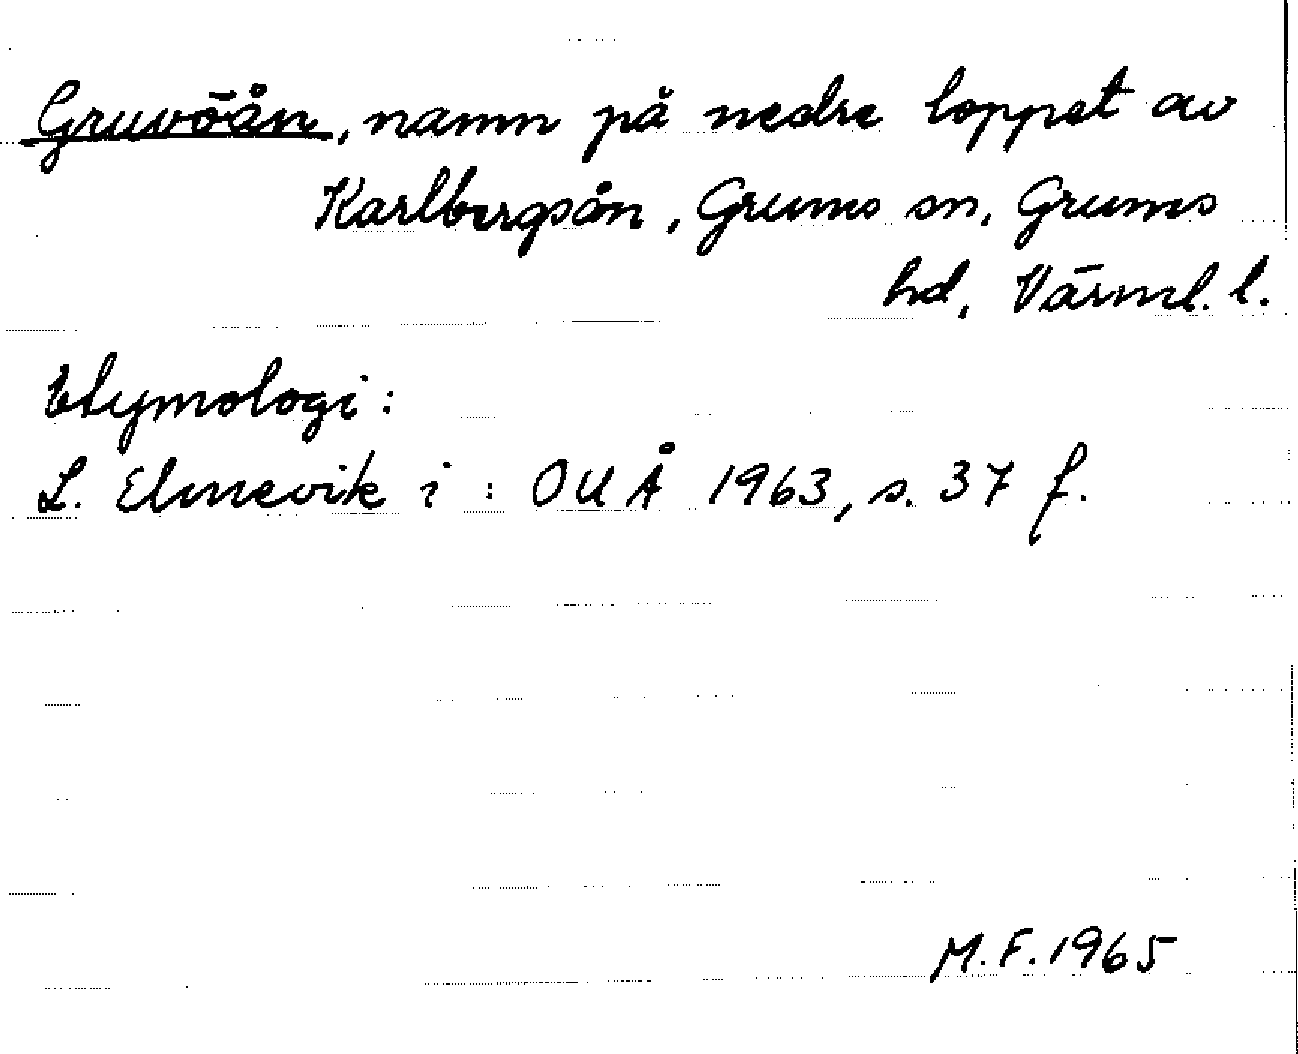 Gruvöån, namn på nedre loppet av
Karlbergsån, Grums sn, Grums
hd, Värml. l.
Etymologi:
L. Elmevik i: OUÅ 1963, s. 37 f.
M.F. 1965